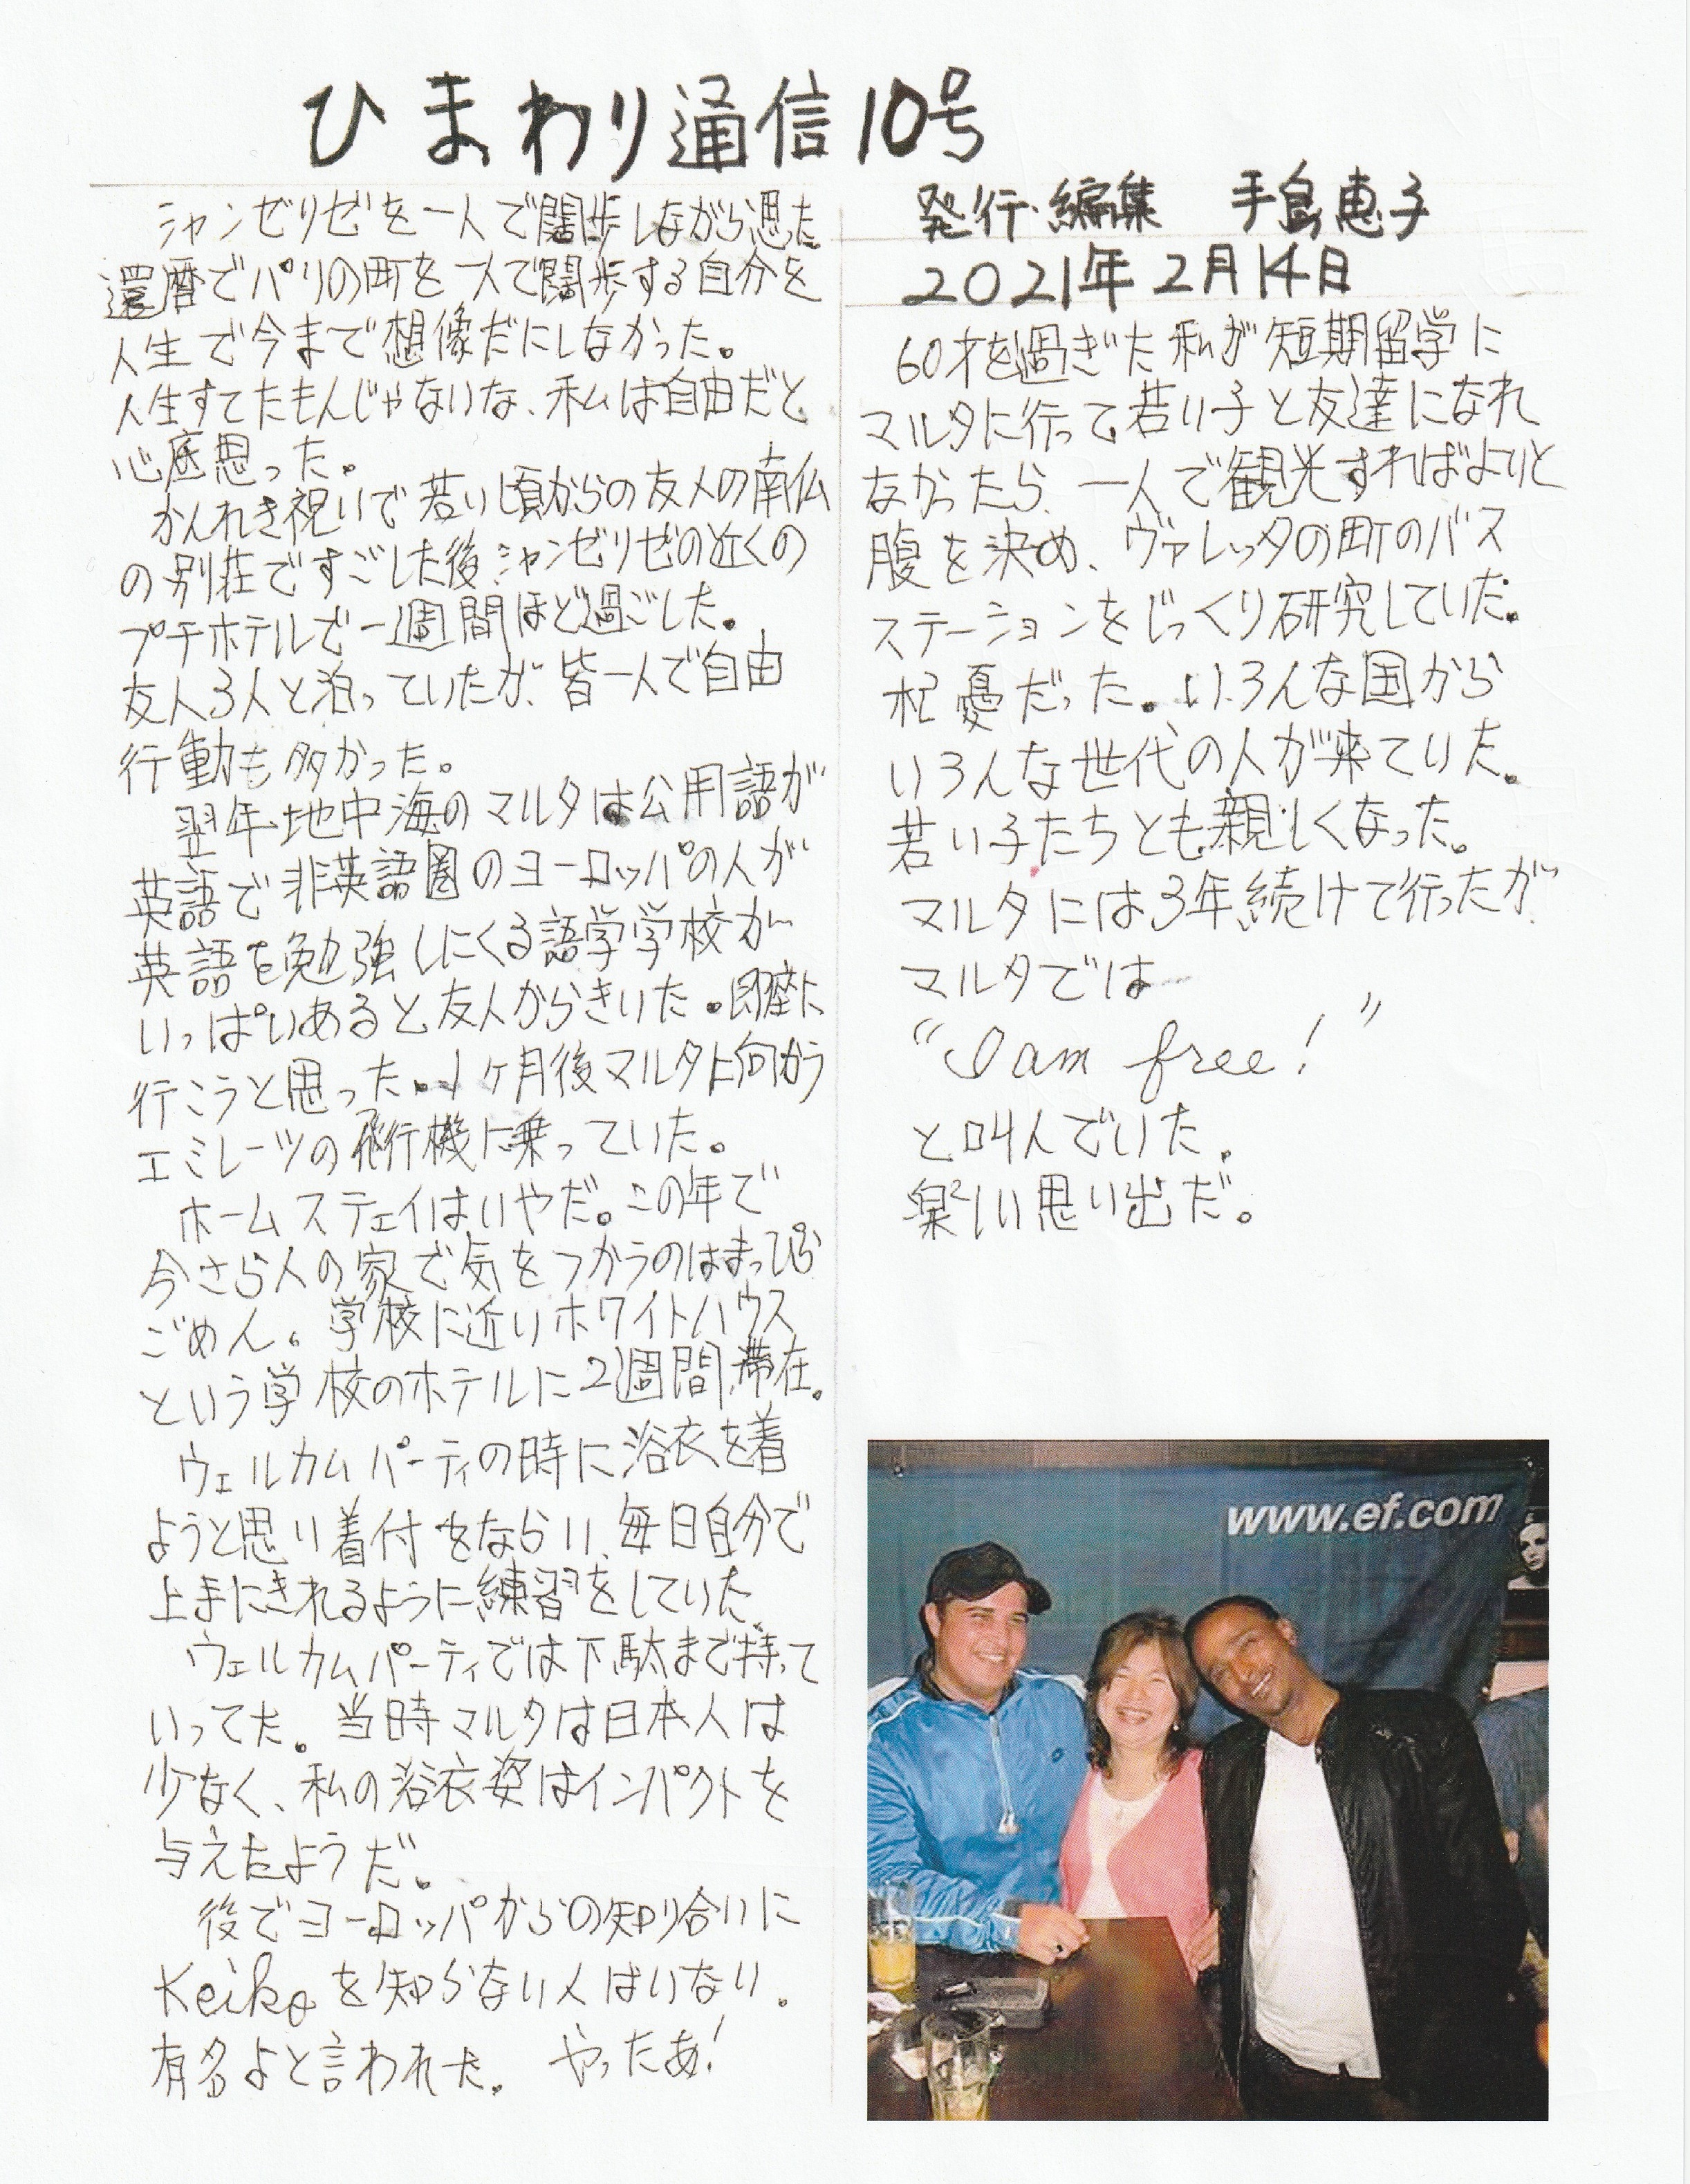 ひまわり通信10号
発行・編集 手島恵子
2021年2月14日
シャンゼリゼを一人で闊歩しながら思った
還暦でパリの町を一人で闊歩する自分を
人生で今まで想像だにしなかった。
人生すてたもんじゃないな、私は自由だと
心底思った。
かんれき祝いで若い頃からの友人の南仏
の別荘ですごした後、シャンゼリゼの近くの
プチホテルで一週間ほど過ごした。
友人3人と泊っていたが、皆一人で自由
行動も多かった。
翌年、地中海のマルタは公用語が
英語で非英語圏のヨーロッパの人が
英語を勉強しにくる語学学校が
いっぱいあると友人からきいた。即座に
行こうと思った。1ヶ月後マルタに向かう
エミレーツの飛行機に乗っていた。
ホームステェイはいやだ。この年で
今さら人の家で気をつかうのはまっぴら
ごめん。学校に近いホワイトハウス
という学校のホテルに2週間滞在。
ウェルカムパーティの時に浴衣を着
ようと思い着付をならい、毎日自分で
上手にきれるように練習をしていた。
ウェルカムパーティでは下駄まで持って
いってた。当時マルタは日本人は
少なく、私の浴衣姿はインパクトを
与えたようだ。
後でヨーロッパからの知り合いに
Keikoを知らない人はいない。
有名よと言われた。 やったあ!
60才を過ぎた私が短期留学に
マルタに行って若い子と友達になれ
なかったら、一人で観光すればよいと
腹を決め、ヴァレッタの町のバス
ステーションをじっくり研究していた。
杞憂だった。いろんな国から
いろんな世代の人が来ていた。
若い子たちとも親しくなった。
マルタには3年続けて行ったが、
マルタでは
“I am free!”
と叫んでいた。
楽しい思い出だ。
www.ef.com